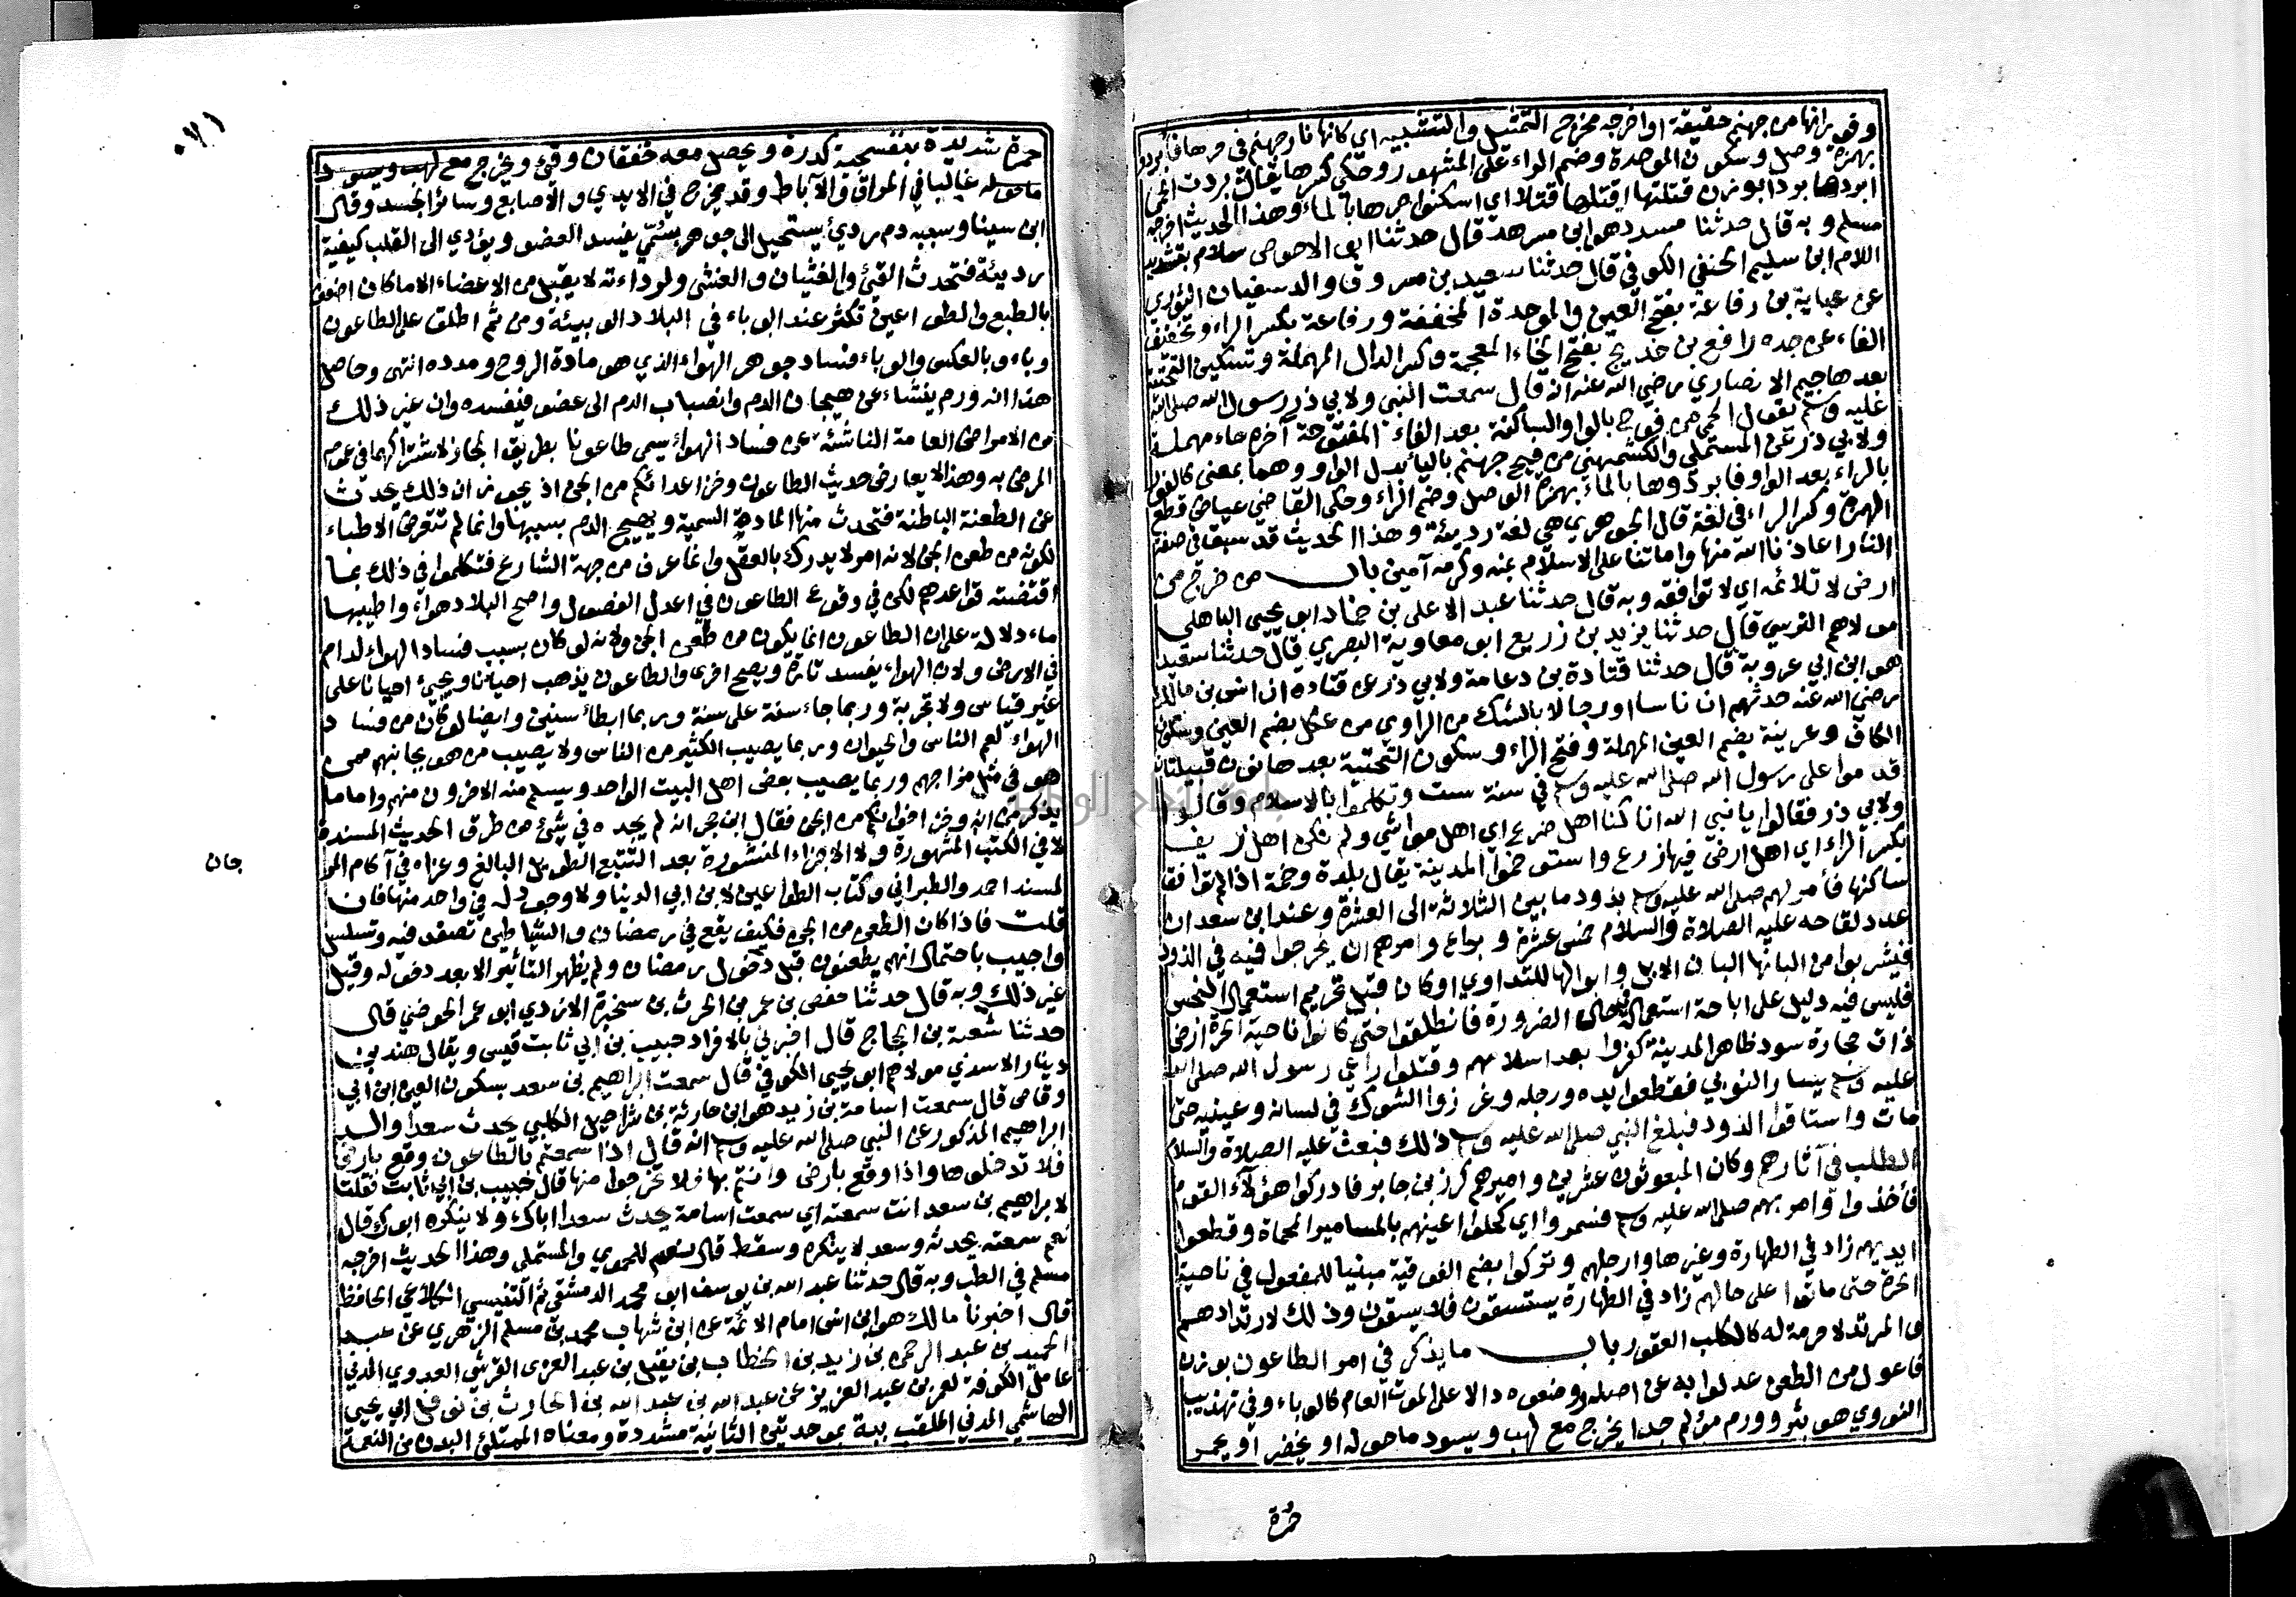 وفورانها من جهنم حقيقة او اخرجه مخرج التمثيل والتشبيه اي كانها نار جهنم في حرها فأبردوها
بهمزة وصل وسكون الموحدة وضم الراء على المشهور وحكي كسرها يقال بردت الحمى
ابردها بردا بوزن قتلتها اقتلها قتلا اي اسكنوا حرها بالماء وهذا الحديث اخرجه
مسلم وبه قال حدثنا مسدد هو ابن مسرهد قال حدثنا ابو الاحوص سلام بتشديد
اللام ابن سليم الحنفي الكوفي قال حدثنا سعيد بن مسروق والد سفيان الثوري
عن عباية بن رفاعة بفتح العين والموحدة المخففة ورفاعة بكسر الراء وتخفيف
الفاء عن جده رافع بن خديج بفتح الخاء المعجمة وكسر الدال المهملة وتسكين التحتية
بعدها جيم الانصاري رضي الله عنه انه قال سمعت النبي ولابي ذر رسول الله صلى الله
عليه وسلم يقول الحمى من فوح بالواو الساكنة بعد الفاء المفتوحة آخره حاء مهملة
ولابي ذر عن المستملي والكشميهني من فيح جهنم باليا بدل الواو وهما بمعنى كالفور
بالراء بعد الواو فابردوها بالماء بهمزة الوصل وضم الراء وحكى القاضي عياض قطع
الهمزة وكسر الراء في لغة قال الجوهري هي لغة رديئة وهذا الحديث قد سبق في صفة
النار اعاذنا الله منها واماتنا على الاسلام بمنه وكرمه آمين باب من خرج من
ارض لا تلائمه اي لا توافقه وبه قال حدثنا عبد الاعلى بن حماد ابو يحيى الباهلي
مولاهم النرسي قال حدثنا يزيد بن زريع ابو معاوية البصري قال حدثنا سعيد
هو ابن ابي عروبة قال حدثنا قتادة بن دعامة ولابي ذر عن قتادة ان انس بن مالك
رضي الله عنه حدثهم ان ناسا او رجالا بالشك من الراوي من عكل بضم العين وسكون
الكاف وعرينة بضم العين المهملة وفتح الراء وسكون التحتية بعدها نون قبيلتان
قدموا على رسول الله صلى الله عليه وسلم في سنة ست وتكلموا بالاسلام وقالوا
ولابي ذر فقالوا يا نبي الله انا كنا اهل ضرع اي اهل مواشي ولم نكن اهل ريف
بكسر الراء اي اهل ارض فيها زرع واستوخموا المدينة يقال بلدة وخمة اذا لم توافق
ساكنها فأمر لهم صلى الله عليه وسلم بذود ما بين الثلاثة الى العشرة وعند ابن سعد ان
عدد لقاحه عليه الصلاة والسلام خمس عشرة وبراع وامرهم ان يخرجوا فيه في الذود
فيشربوا من البانها البان الابل وابوالها للتداوي او كان قبل تحريم استعمال النجس
فليس فيه دليل على اباحة استعماله في حال الضرورة فانطلقوا حتى كانوا ناحية الحرة ارض
ذات حجارة سود ظاهر المدينة كفروا بعد اسلامهم وقتلوا راعي رسول الله صلى الله
عليه وسلم يسار النوبي فقطعوا يده ورجله وغرزوا الشوك في لسانه وعينيه حتى
مات واستاقوا الذود فبلغ النبي صلى الله عليه وسلم ذلك فبعث عليه الصلاة والسلام
الطلب في آثارهم وكان المبعوثون عشرين واميرهم كرز بن جابر فادركوا هؤلاء القوم
فأخذوا وامر بهم صلى الله عليه وسلم فسمروا اي كحلوا اعينهم بالمسامير المحماة وقطعوا
ايديهم زاد في الطهارة وغيرها وارجلهم وتركوا بضم الفوقية مبنيا للمفعول في ناحية
الحرة حتى ماتوا على حالهم زاد في الطهارة يستسقون فلا يسقون وذلك لارتدادهم
والمرتد لا حرمة له كالكلب العقور باب ما يذكر في امر الطاعون بوزن
فاعول من الطعن عدلوا به عن اصله ووضعوه دالا على الموت العام كالوباء وفي تهذيب
النووي هو بثر وورم مؤلم جدا يخرج مع لهب ويسود ما حوله او يخضر او يحمر
حمرة
حمرة شديدة بنفسجية كدرة ويحصل معه خفقان وقئ ويخرج مع لهب ويسود
ما حوله غالبا في المراق والآباط وقد يخرج في الايدي والاصابع وسائر الجسد وقال
ابن سينا وسببه دم ردئ يستحيل الى جوهر سمّي يفسد العضو ويؤدي الى القلب كيفية
رديئة فتحدث القئ والغثيان والغشي ولرداءته لا يقبل من الاعضاء الا ما كان اضعف
بالطبع والطواعين تكثر عند الوباء في البلاد الوبيئة ومن ثم اطلق على الطاعون
وباء وبالعكس والوباء فساد جوهر الهواء الذي هو مادة الروح ومدده انتهى وحاصل
هذا انه ورم ينشاء عن هيجان الدم وانصباب الدم الى عضو فيفسده وان غير ذلك
من الامراض العامة الناشئة عن فساد الهواء يسمى طاعونا بطريق المجاز لاشتراكهما في عموم
المرض به وهذا لا يعارض حديث الطاعون وخز اعدائكم من الجن اذ يجوز ان ذلك يحدث
عن الطعنة الباطنة فتحدث منها المادة السمية ويهيج الدم بسببها وانما لم تتعرض الاطباء
لكونه من طعن الجن لانه امر لا يدرك بالعقل وانما عرف من جهة الشارع فتكلموا في ذلك بما
اقتضته قواعدهم لكن في وقوع الطاعون في اعدل الفصول واصح البلاد هواء واطيبها
ماء دلالة على ان الطاعون انما يكون من طعن الجن ولانه لو كان بسبب فساد الهواء لدام
في الارض ولان الهواء يفسد تارة ويصح اخرى والطاعون يذهب احيانا ويجئ احيانا على
غير قياس ولا تجربة وربما جاء سنة على سنة وربما ابطأ سنين وايضا لو كان من فساد
الهواء لعم الناس والحيوان وربما يصيب الكثير من الناس ولا يصيب من هو بجانبهم ممن
هو في مثل مزاجهم وربما يصيب بعض اهل البيت الواحد ويسلم منه الاخرون منهم واما ما
يذكر من انه وخز اخوانكم من الجن فقال ابن حجر انه لم يجده في شئ من طرق الحديث المسندة
لا في الكتب المشهورة ولا الاجزاء المنشورة بعد التتبع الطويل البالغ وعزاه في آكام المر
جان
لمسند احمد والطبراني وكتاب الطواعين لابن ابي الدنيا ولا وجود له في واحد منها فان
قلت فاذا كان الطعن من الجن فكيف يقع في رمضان والشياطين تصفد فيه وتسلسل
واجيب باحتمال انهم يطعنون قبل دخول رمضان ولم يظهر التأثير الا بعد دخوله وقيل
غير ذلك وبه قال حدثنا حفص بن عمر بن الحرث بن سخبرة الازدي ابو عمر الحوضي قال
حدثنا شعبة بن الحجاج قال اخبرني بالافراد حبيب بن ابي ثابت قيس ويقال هند بن
دينار الاسدي مولاهم ابو يحيى الكوفي قال سمعت ابراهيم بن سعد بسكون العين ابن ابي
وقاص قال سمعت اسامة بن زيد هو ابن حارثة بن شراحيل الكلبي يحدث سعدا والد
ابراهيم المذكور عن النبي صلى الله عليه وسلم انه قال اذا سمعتم بالطاعون وقع بارض
فلا تدخلوها واذا وقع بارض وانتم بها فلا تخرجوا منها قال حبيب بن ابي ثابت فقلت
لابراهيم بن سعد انت سمعته اي سمعت اسامة يحدث سعدا اباك ولا ينكره ابوك قال
نعم سمعته يحدثه وسعد لا ينكره وسقط قال نعم للحموي والمستملي وهذا الحديث اخرجه
مسلم في الطب وبه قال حدثنا عبد الله بن يوسف ابو محمد الدمشقي ثم التنيسي الكلاعي الحافظ
قال اخبرنا مالك هو ابن انس امام الائمة عن ابن شهاب محمد بن مسلم الزهري عن عبد
الحميد بن عبد الرحمن بن زيد بن الخطاب بن نفيل بن عبد العزى القرشي العدوي المدني
عامل الكوفة لعمر بن عبد العزيز عن عبد الله بن عبد الله بن الحارث بن نوفل ابي يحيى
الهاشمي المدني الملقب ببة بموحدتين الثانية مشددة ومعناه الممتلئ البدن من النعمة